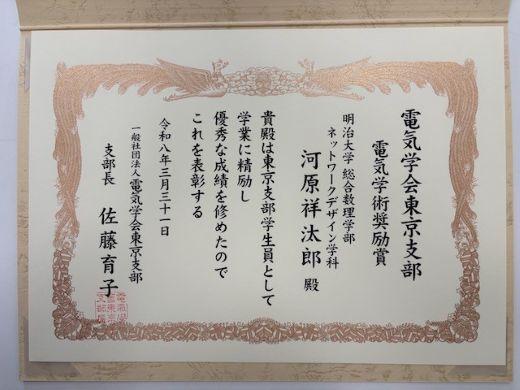 電気学会東京支部
電気学術奨励賞
明治大学 総合数理学部
ネットワークデザイン学科
河原祥汰郎 殿
貴殿は東京支部学生員として
学業に精励し
優秀な成績を修めたので
これを表彰する
令和八年三月三十一日
一般社団法人 電気学会東京支部
支部長 佐藤育子